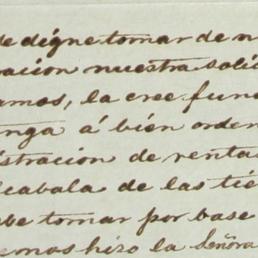 de digne tomar de n
ración nuestra solic
ramos, la cree fund
nga á bién orden
istración de renta
lcabala de las tie
be tomar por base
emos hizo la Señora